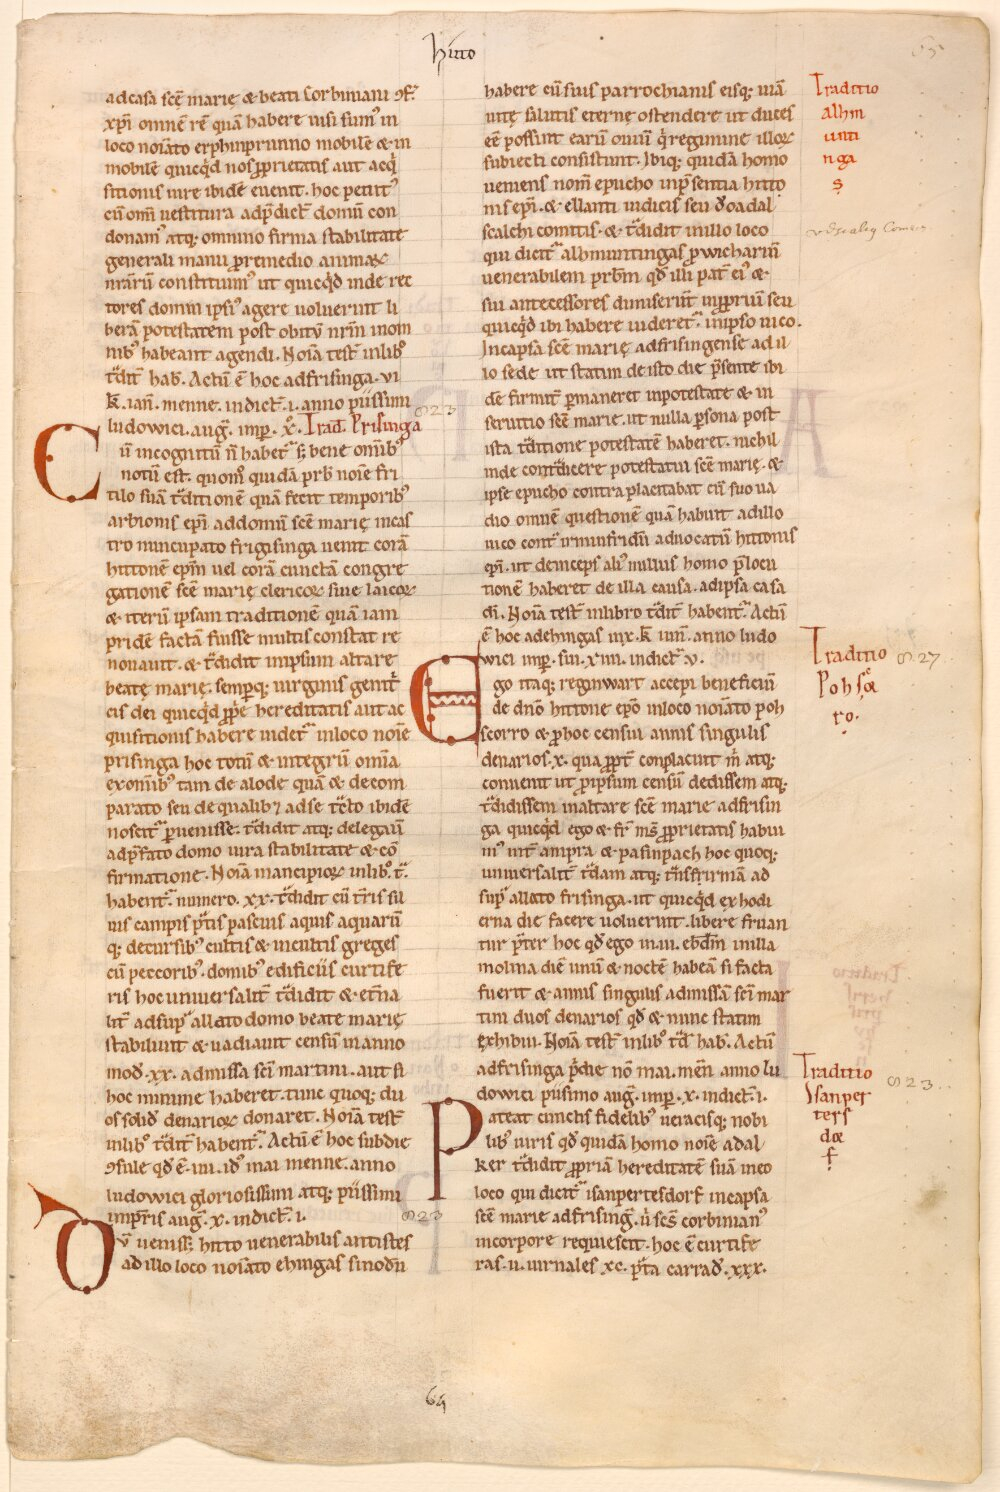 hitto
ad casa scę marię & beati Corbiniani ɔf.
xp̄i omnē rē quā habere uisi sum' in
loco noīato erphinprunno mobilē & in
mobilē quicq̄d nos p̄prietatis aut acq̄
sitionis iure ibidē euenit. hoc petiit'
cū om̄i uestitura ad p̄dict̄ domū con
donam' atq; omnino firma stabilitate
generali manu p̄ remedio animaꝝ
nr̄arū constituim' ut quicq̄d inde rec
tores domni ipsi' agere uoluerint li
berā potestatem post obitū nr̄m inom
nib' habeant agendi. Noīa test̄ in lib'
t̄dit̄ hab̄. Actū ē hoc ad frisinga. vi
k. ian̄. menne. indict̄. i. anno piissimi
ludowici. aug̃. imp̄. x̊. Trad̄. Prisinga
823
Cū incognitū n̄ habet᷑ s; bene om̄ib'
notū est. quom̊ quidā prb̄ noīe fri
tilo suā t̄ditionē quā fecit temporib'
arbionis ep̄i ad domū scę marię in cas
tro nuncupato frigisinga uenit corā
hittonē ep̄m uel corā cunctā congre
gationē scę marię clericoꝝ siue laicoꝝ
& iterū ipsam traditionē quā iam
pridē factā fuisse multis constat re
nouauit. & t̄didit in ipsum altare
beatę marię. semp̄q; uirginis genit̄
cis dei quicq̄d p̄p̄e hereditatis aut ac
quisitionis habere uidet᷑ in loco noīe
prisinga hoc totū & integrū om̄ia
ex om̄ib' tam de alode quā & de com
parato seu de qualib; adse t̄cto ibidē
noscit᷑ p̄uenisse. t̄didit atq; delegau̅
ad p̄fato domo iura stabilitate & cō
firmatione. Noīa mancipioꝝ in lib'. t̄.
habent᷑. numero. xx. t̄didit cū t̄ris sil
uis campis p̄tis pascuis aquis aquarū
q; decursib' cultis & incultis greges
cū peccorib'. domib' edificiis curtife
ris hoc uniuersalit̄ t̄didit & et̄na
lit̄ ad sup̄ allato domo beate marię
stabiliuit & uadiauit censū in anno
mod̄. xx. admissa sc̄i martini. aut si
hoc minime haberet. tunc quoq; du
os solid̄ denarioꝝ donaret. Noīa test̄
in lib' t̄dit̄ habent᷑. Actū ē hoc sub die
ɔsule q̄d ē. iiii. id' mai menne. anno
ludowici gloriosissimi atq; piissimi
imp̄ris aug̃. x. indict̄. i.
823
Dū uenisS; hitto uenerabilis antistes
ad illo loco noīato ehingas sinodū
habere cū suis parrochianis eisq; uiā
uitę salutis eternę ostendere ut duces
eē possint earū ouiū q̄ regimine illoꝝ
subiecti consistunt. Ibiq; quidā homo
ueniens nom̄ epucho in p̄sentia hitto
nis ep̄i. & ellanti iudicis seu ðoadal
scalchi comitis. & t̄didit in illo loco
qui dicit᷑ albmuntingas p̄ wicharium
uenerabilem prb̄m q̄d illi pat̄ ei' &
sui antecessores dimiserunt in p̄priū seu
quicq̄d ibi habere uideret᷑. in ipso uico.
In capsa scę marię ad frisingense ad il
lo sede ut statim de isto die p̄sente ibi
dē firmit̄ p̄maneret in potestate & in
seruitio scę marię. ut nulla p̄sona post
ista t̄ditione potestatē haberet. nichil
inde cont̄dicere potestatiui scę marię. &
ipse epucho contra placitabat cū suo ua
dio omnē questionē quā habuit ad illo
uico cont̄ irminfridū aduocatū hittonis
ep̄i. ut deinceps ali' nullus homo p̄locu
tionē haberet de illa causa. ad ipsa casa
d̄i. Noīa test̄ in libro t̄dit̄ habent᷑. Actū
ē hoc ad ehingas iix. k. iun̄. anno ludo
wici imp̄. sui. xiiii. indict᷑ v.
Ego itaq; reginwart accepi beneficiū
de dn̄o hittone ep̄o in loco noīato poh
scorro & p̄ hoc censui annis singulis
denarios. x. qua p̄pt̄ conplacuit m̄ atq;
conuenit ut p̄ ipsum censū dedissem atq;
t̄didissem in altare scę marie ad frisin
ga quicq̄d ego & fr̄ ms̄ p̄prietatis habui
m' int̄ ampra & pasinpach hoc quoq;
uniuersalit̄ t̄dam atq; t̄nsfirmā ad
sup̄ allato frisinga. ut quicq̄d ex hodi
erna die facere uoluerint. libere fruan
tur p̄ter hoc q̄d ego in .iii. ebdm̄ in illa
molina diē unū & noctē habeā si facta
fuerit & annis singulis admissā sc̄i mar
tini duos denarios q̄d & nunc statim
exhibui. Noīa test̄ in lib' t̄d̄ hab̄. Actū
ad frisinga p̄die nō mai. men̄. anno lu
dowici piissimo aug̃. imp̄. x. indict̄. i.
Pateat cunctis fidelib' ueracisq; nobi
lib' uiris q̄d quidā homo noīe adal
ker t̄didit p̄priā hereditatē suā in co
loco qui dicit᷑ isanpertesdorf in capsa
scę marie ad frisinḡ. ū scs̄ corbinian'
in corpore requiescit. hoc ē curtife
ras. ii. iurnales xc. p̄ta carrad̄. xxx.
Traditio
albm
unti
nga
s
Traditio
Pohsco̊
ro.
827
Traditio
Isanper
tesd
o
f
823.
64